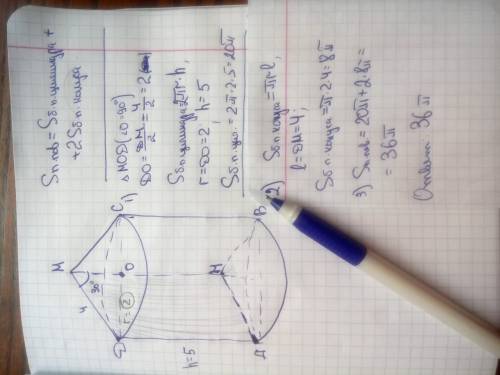 Sп.пов = Sб.п.цилиндра +
+ 2.Sб.п.конуса
△MOD (∠O = 90°)
DO = DM/2 = 4/2 = 2
1) Sб.п.цилиндра = 2πr·h,
r = DO = 2, h = 5
Sб.п.цил. = 2π·2·5 = 20π
2) Sб.п конуса = πrl,
l = DM = 4;
Sб.п конуса = π·2·4 = 8π
3) Sп.пов = 20π + 2·8π =
= 36π
Ответ: 36π
M
4
30°
D
r=2
O
C
h=5
M
A
B